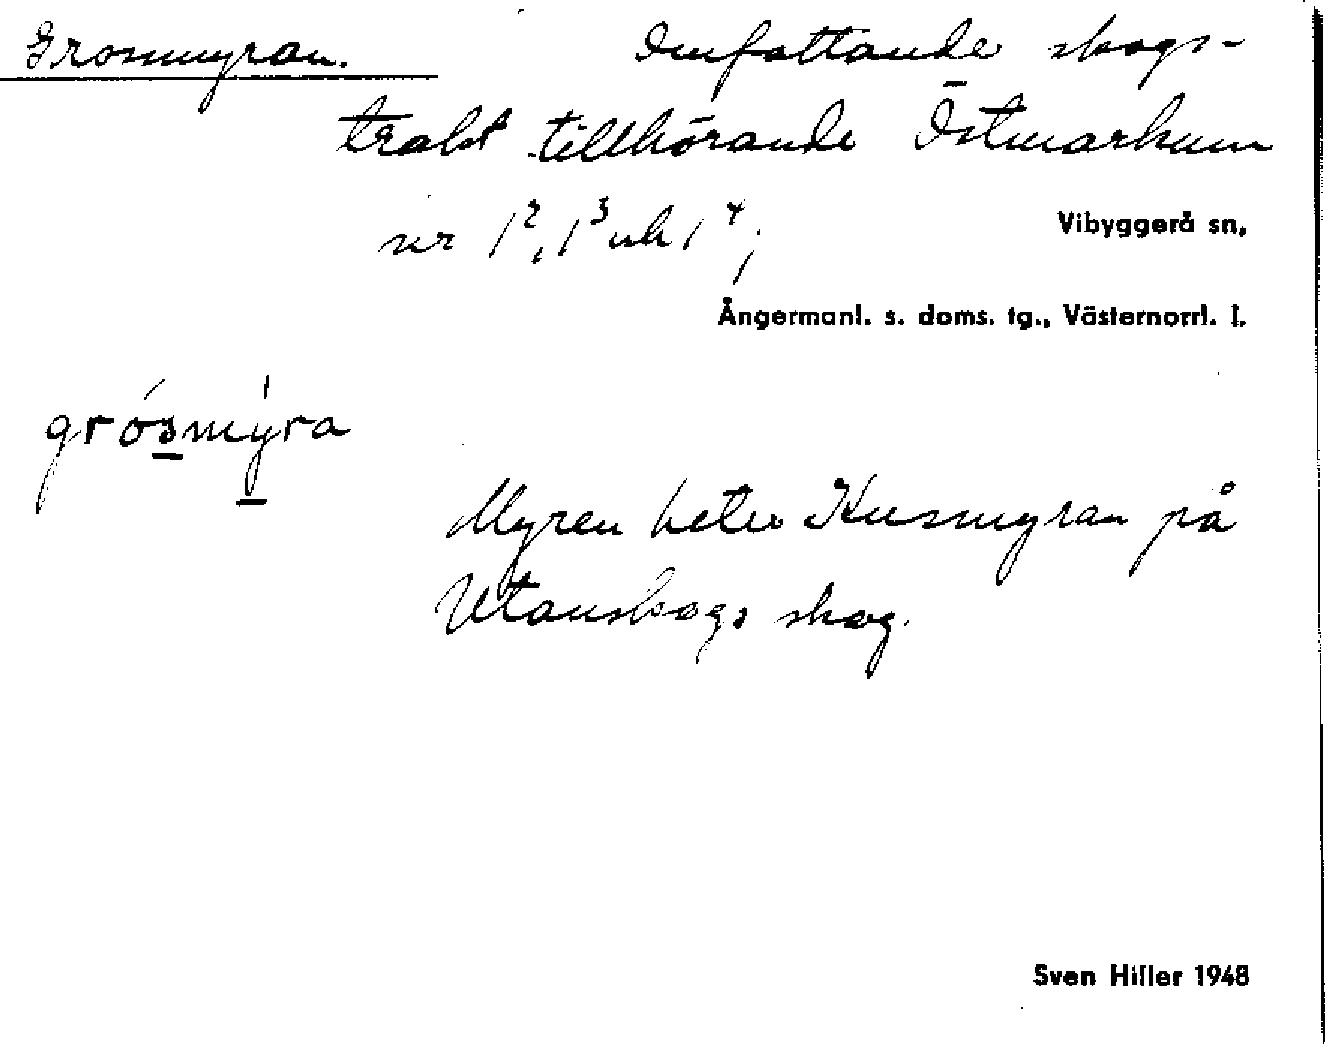 Grosmyran. Omfattande skogs-
trakt tillhörande Östmarkum
nr 1², 1³ och 1⁴;
Vibyggerå sn,
Ångermanl. s. doms. tg., Västernorrl. l.
grósmýra
Myren heter Kusmyran på
Utanskogs skog.
Sven Hiller 1948